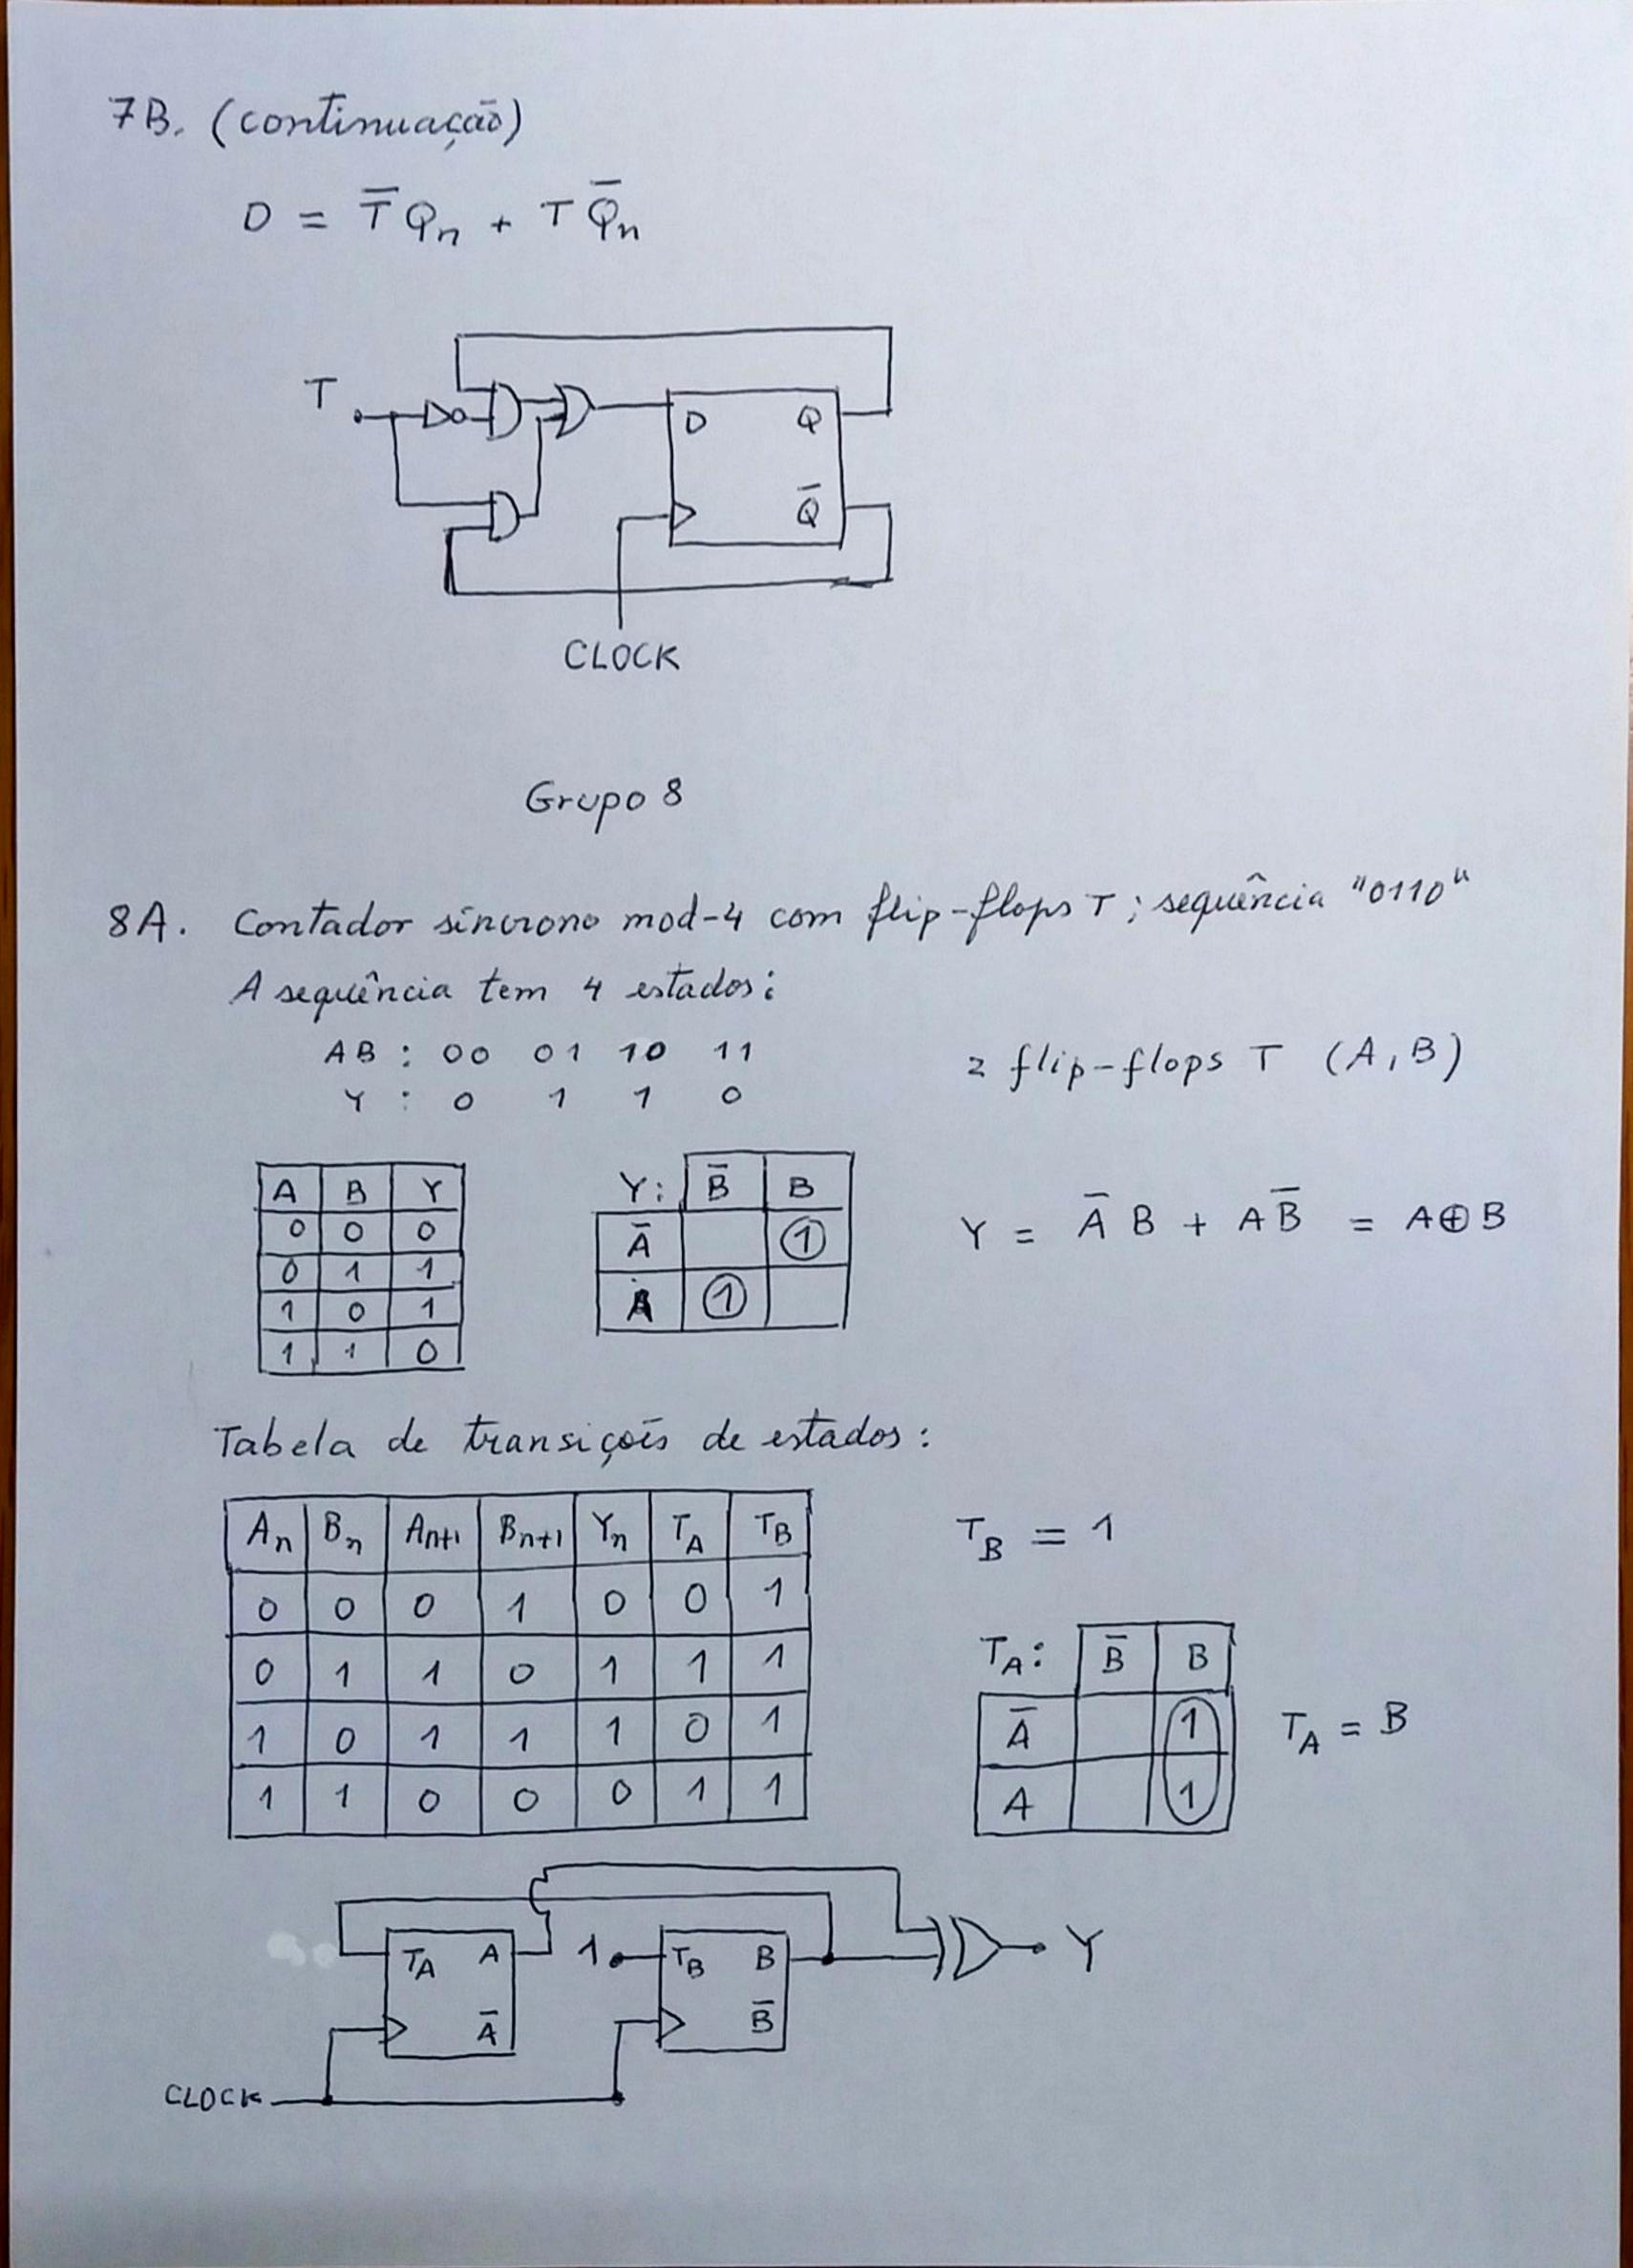 7B. (continuação)
D = T̅ Qn + T Q̅n
T
D Q
Q̅
CLOCK
Grupo 8
8A. Contador síncrono mod-4 com flip-flops T; sequência "0110"
A sequência tem 4 estados:
AB : 00 01 10 11
2 flip-flops T (A,B)
Y : 0 1 1 0
A B Y
0 0 0
0 1 1
1 0 1
1 1 0
Y: B̅ B
A̅ 1
A 1
Y = A̅ B + A B̅ = A⊕B
Tabela de transições de estados:
An Bn An+1 Bn+1 Yn TA TB
0 0 0 1 0 0 1
0 1 1 0 1 1 1
1 0 1 1 1 0 1
1 1 0 0 0 1 1
TB = 1
TA: B̅ B
A̅ 1
A 1
TA = B
TA A 1 TB B Y
A̅ B̅
CLOCK